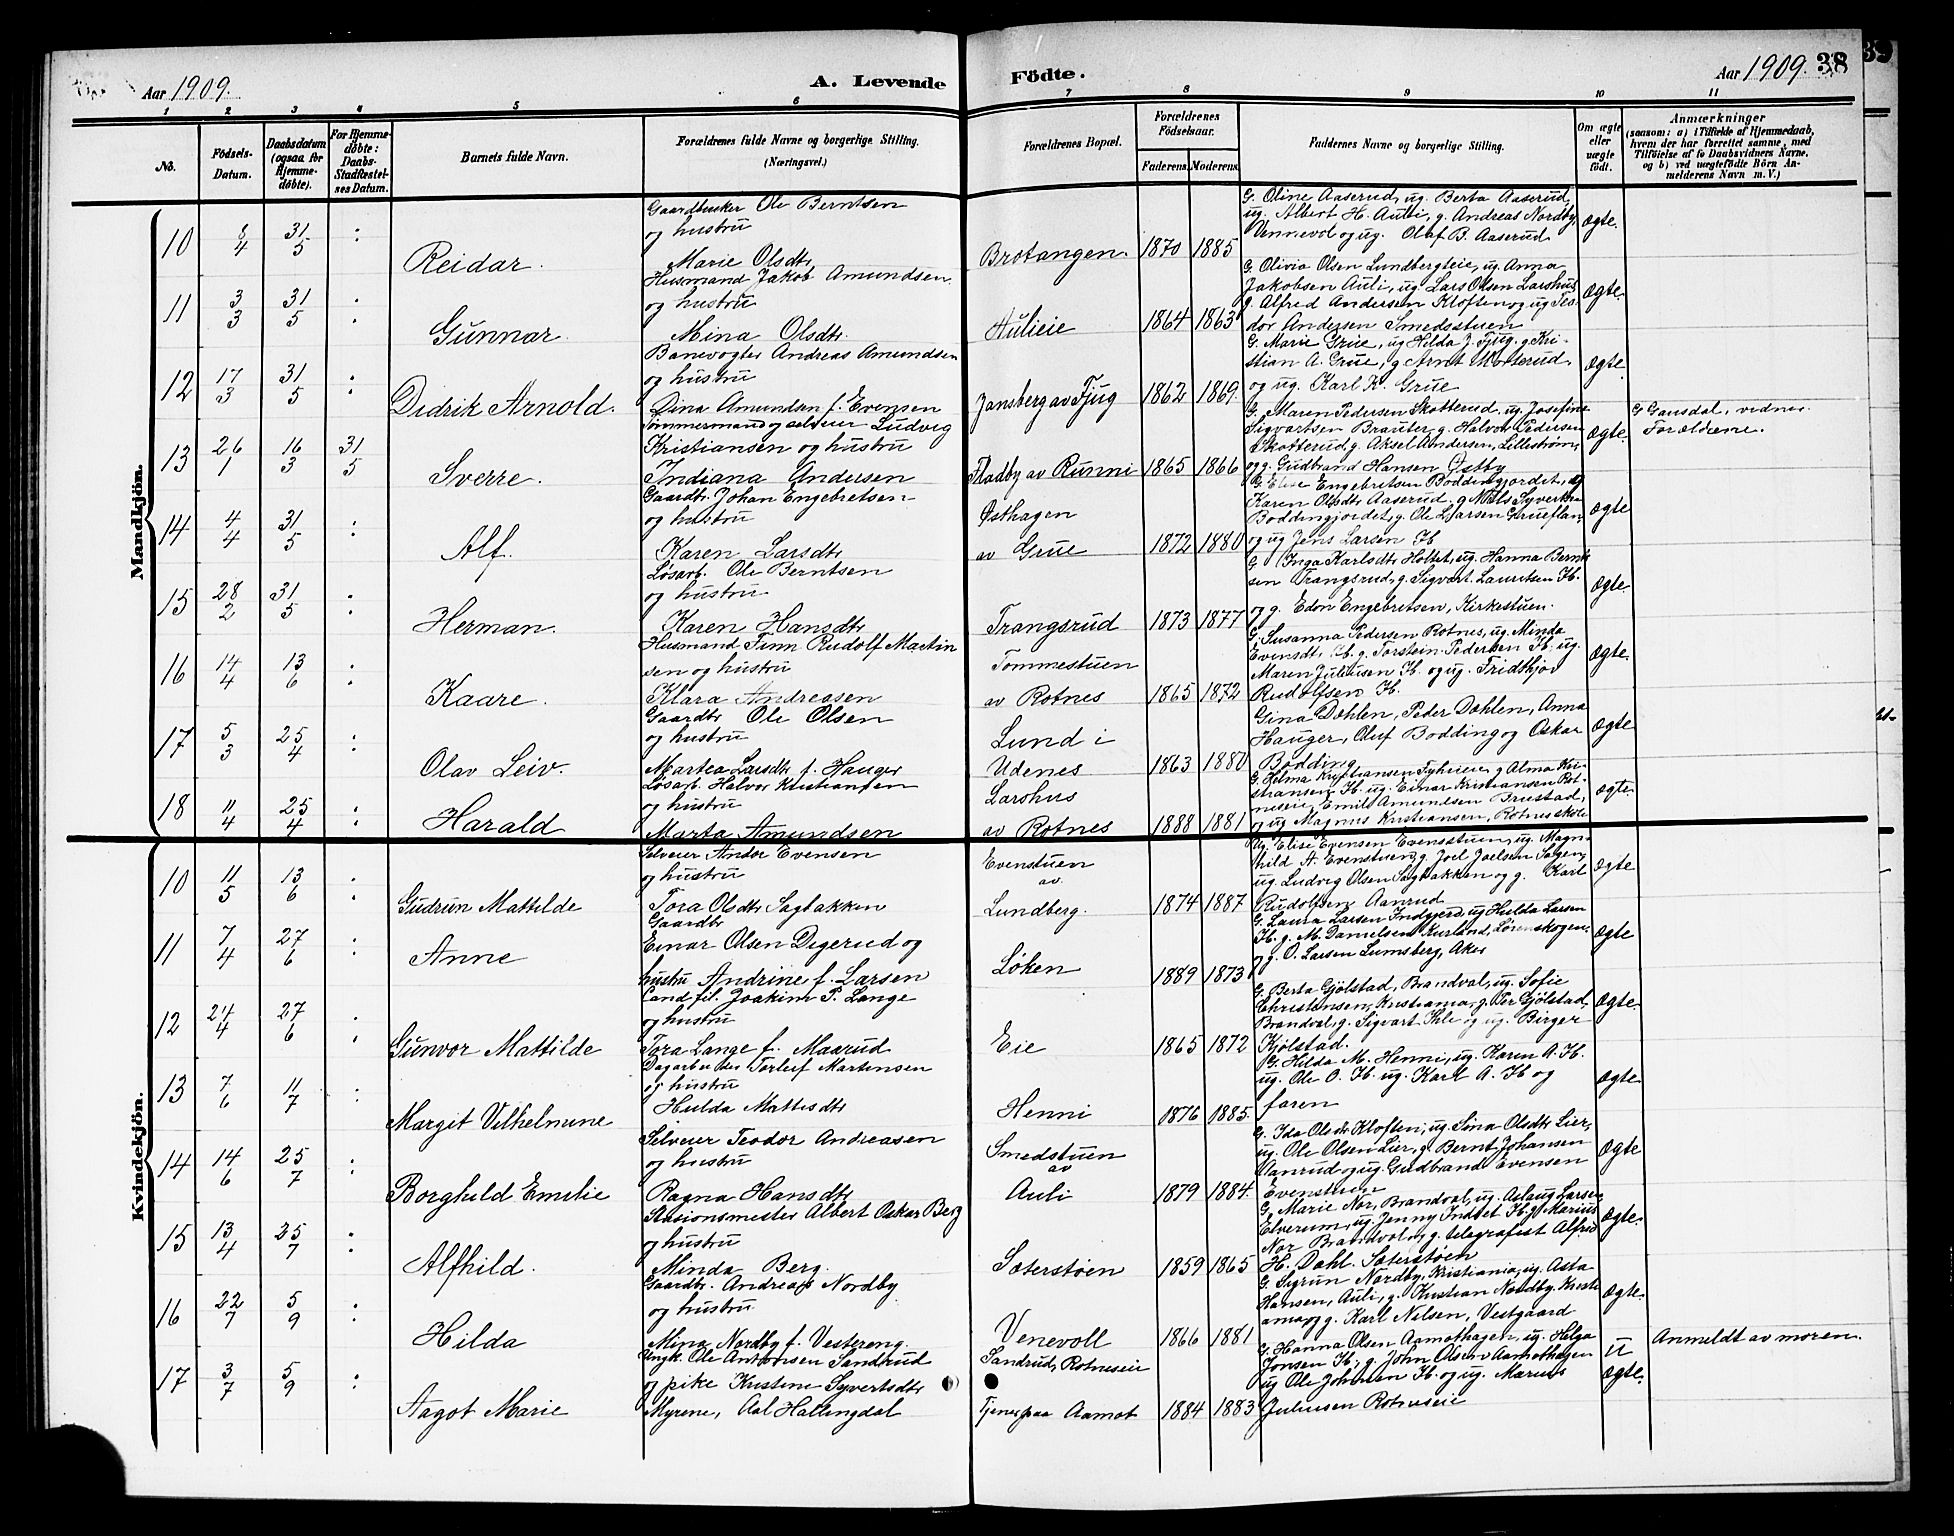 Aar 1909.
A. Levende
Födte.
Aar 1909.
38
39
1 2 3 4 5 6 7 8 9 10 11
No.
Födsels-Datum.
Daabsdatum (ogsaa for Hjemme-döbte).
For Hjemme-döbte: Daabs-Stadfæstel-ses Datum.
Barnets fulde Navn.
Forældrenes fulde Navne og borgerlige Stilling.
(Næringsvei.)
Forældrenes Bopæl.
Forældrenes Födselsaar.
Faderens. Moderens.
Faddernes Navne og borgerlige Stilling.
Om ægte eller uægte födt.
Anmærkninger
(saasom: a) i Tilfælde af Hjemmedaab,
hvem der har forrettet samme, med
Tilföielse af to Daabsvidners Navne,
og b) ved uægtefödte Börn An-
melderens Navn m. V.)
Mandkjön.
10 8/4 31/5 :
Reidar.
Gaardbruker Ole Berntsen
og hustru
Marie Olsdtr
Brotangen. 1870 1885
G. Oline Aaserud, ug. Berta Aaserud,
ug. Albert H. Auli, g. Andreas Nordby,
Vennevol og ug. Olaf B. Aaserud
Ægte.
11 3/3 31/5 :
Gunnar.
Husmand Jakob Amundsen
og hustru
Mina Olsdtr.
Aulieie 1864 1863
G. Olivia Olsen Lundbergeie, ug. Anna
Jakobsen Auli, ug. Lars Olsen Larshus
g. Alfred Andersen Kloften og ug Teo-
dor Andersen Smedsstuen
Ægte.
12 17/3 31/5 :
Didrik Arnold.
Banevogter Andreas Amundsen
og hustru
Dina Amundsen f. Evensen
Jansberg av Fjug 1862 1869.
G. Marie Grue, ug Hilda J. Fjug. g. Kri-
stian A. Grue, g Arnt Morterud
og ug. Karl K. Grue
Ægte.
13 26/1 16/3 31/5
Sverre.
Tømmermand og selveier Ludvig
Kristiansen og hustru
Indiana Andersen
Fladby av Runni 1865 1866
G. Maren Pedersen Skotterud, ug. Josefine
Sigvartsen Brauter, g. Halvor Pedersen
Skotterud, g. Aksel Andersen, Lillestrøm,
og g. Gudbrand Hansen Østby
Ægte.
G Gansdal, vidner
Forældrene.
14 4/4 31/5 :
Alf.
Gaardbr. Johan Engebretsen
og hustru
Karen Larsdtr
Østhagen
av Grue 1872 1880
G. Elise Engebretsen Boddingjordet, ug
Karen Olsdtr Aaserud. g Nils Syvertsen
Boddingjordet, g. Ole Larsen Grueflan,
og ug Jens Larsen Ib
Ægte
15 28/2 31/5 :
Herman.
Løsarb. Ole Berntsen
og hustru
Karen Hansdtr
Trangsrud 1873 1877
G Inga Karlsdtr Holtet, ug. Hanna Bernt-
sen Trangsrud, g. Sigvart Lauritsen Ib.
og g. Edon Engebretsen, Kirkestuen.
Ægte.
16 14/4 13/6 :
Kaare.
Husmand Finn Rudolf Martin
sen og hustru
Klara Andreasen
Tommestuen
av Rotnes 1865 1872
G. Susanna Pedersen Rotnes, ug. Minda
Evensdtr Ib. g. Torstein Pedersen Ib, ug.
Maren Juliusen Ib. og ug. Fridthjov
Rudolfsen Ib.
Ægte.
17 5/3 25/4 :
Olav Leiv.
Gaardbr Ole Olsen
og hustru
Martea Larsdtr f. Hauger
Lund i
Udenes 1863 1880
Gina Dæhlen, Peder Dæhlen, Anna
Hauger, Oluf Bodding og Oskar
Bodding
Ægte
18 11/4 25/4 :
Harald
Løsarb. Halvor Kristiansen
og hustru
Marta Amundsen
Larshus
av Rotnes 1888 1881
G. Helma Kristiansen g Alma Kri-
stiansen Ib. ug. Einar Kristiansen Rot-
neseie, Emil Amundsen Brustad,
og ug Magnus Kristiansen, Rotnesskole
ægte.
Kvindekjön.
10 11/5 13/6 :
Gudrun Mathilde
Selveier Andor Evensen
og hustru
Tora Olsdtr Sagbakken
Evenstuen
av
Lundberg. 1874 1887
Ug. Elise Evensen Evensstuen, ug. Magn-
hild A. Evenstuen, g. Joel Joelsen Sagen,
ug. Ludvig Olsen Sagbakken og g. Karl
Rudolfsen Aanrud
Ægte
11 7/4 27/6 :
Anne
Gaardbr
Einar Olsen Digerud og
hustru Andrine f. Larsen
Løken 1889 1873
G. Laura Larsen Indgjerd, ug Hulda Larsen
Ib. g. M. Danielsen Kurland, Lørenskogen,
og g. O. Larsen Lumsberg, Aker
Ægte
12 24/4 27/6 :
Gunvor Mathilde
Cand fil. Joakim P. Lange
og hustru
Tora Lange f. Maarud
Eie 1865 1872
G. Berta Gjølstad, Brandval, ug. Sofie
Christensen, Kristiania, g. Per Gjølstad,
Brandval, g. Sigvart Ihle og ug. Birger
Kjølstad.
Ægte.
13 7/6 11/7 :
Margit Vilhelmine
Dagarbeider Torleif Martensen
og hustru
Hulda Mattisdtr
Henni 1876 1885.
G. Hilda M. Henni, ug. Karen A. Ib.
ug. Ole O. Ib. ug. Karl A. Ib og
faren
Ægte.
14 14/6 25/7 :
Borghild Emilie
Selveier Teodor Andreasen
og hustru
Ragna Hansdtr
Smedstuen
av
Auli 1879 1884.
G. Ida Olsdtr Kloften, ug. Lina Olsdtr Lier,
ug. Ole Olsen Lier, g Bernt Johansen
Aanrud og ug. Gudbrand Evensen
Evenstuen
Ægte
15 13/4 25/7 :
Alfhild.
Stasionsmester Albert Oskar Berg
og hustru
Minda Berg.
Sæterstøen 1859 1865
G. Marie Nor, Brandval, ug. Aslaug Larsen
Elverum, ug. Jenny Indset Ib, g. Marius
Nor Brandval, g. telegrafist Alfred
H. Dahl. Sæterstøen
Ægte.
16 22/7 5/9 :
Hilda
Gaardbr. Andreas Nordby
og hustru
Mina Nordby f. Vestreng.
Venevoll 1866 1881
G. Sigrun Nordby, Kristiania, ug. Asta
Hansen, Auli, g. Kristian Nordby. Kristi-
ania og g. Karl Nilsen, Vestgaard
Ægte.
17 3/7 5/9 :
Aagot Marie
Ungk. Ole Antonsen Sandrud
og pike Kristine Syvertsdtr
Myrene, Aal Hallingdal
Sandrud, Rotneseie
Tjener paa Aamot 1884 1883
G. Hanna Olsen Aamothagen, ug. Helga
Jonsen Ib, g. John Olsen Aamothagen
ug Ole Johnsen Ib. og ug. Marius
Juliusen Rotneseie
U
Ægte.
Anmeldt av moren.